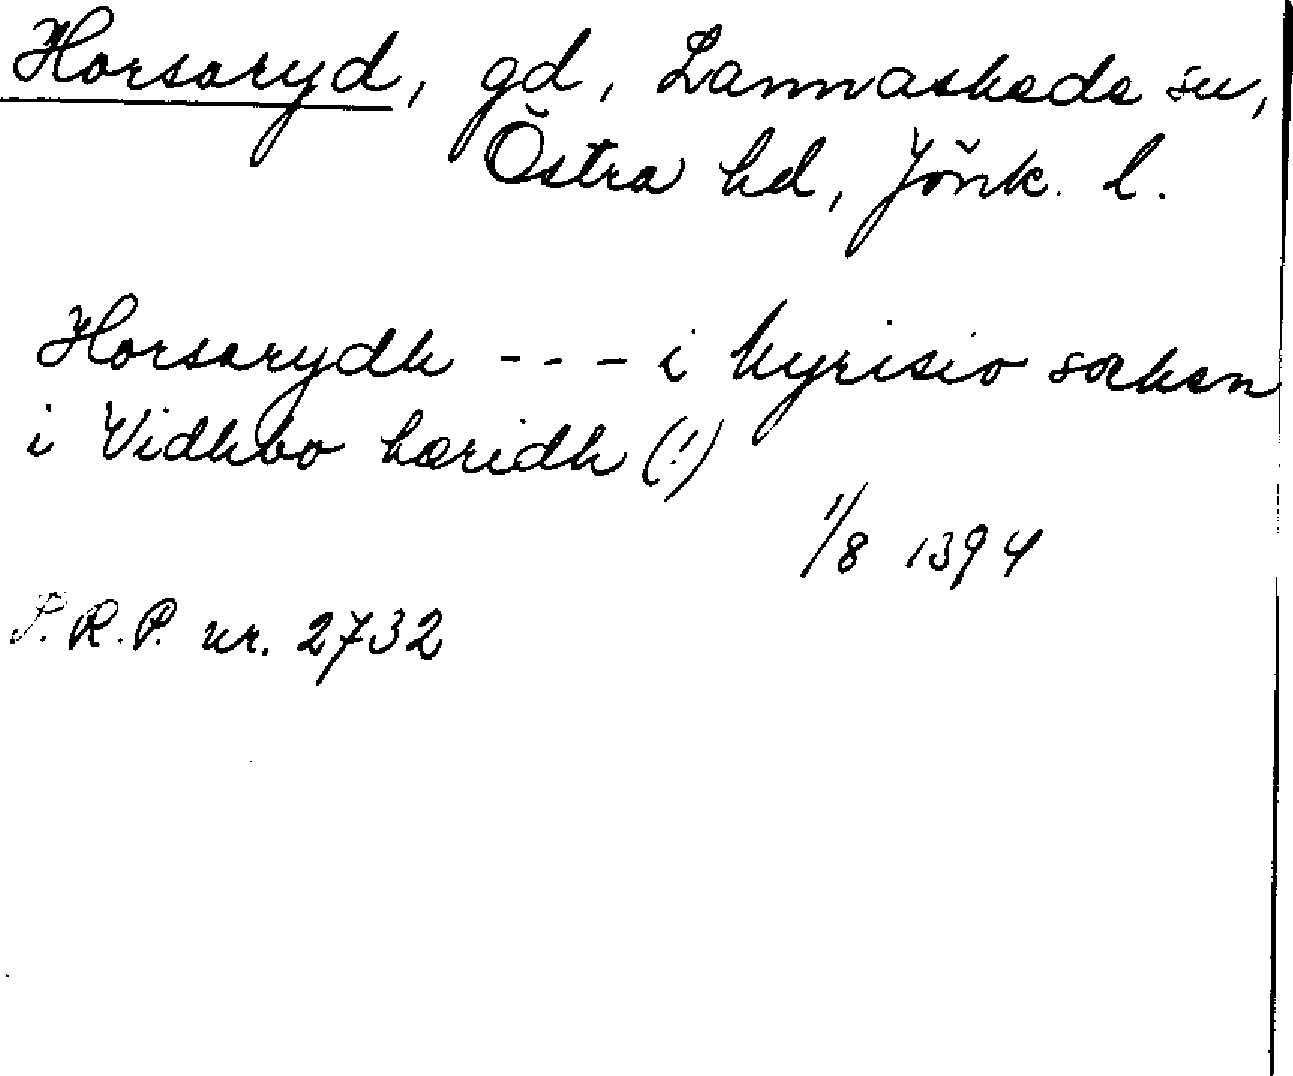 Horsaryd, gd, Lannaskede sn,
Östra hd, Jönk. l.
Horsarydh --- i hyrisio soken
i Vidhbo hæridh (!)
1/8 1394
S.R.P. nr. 2732